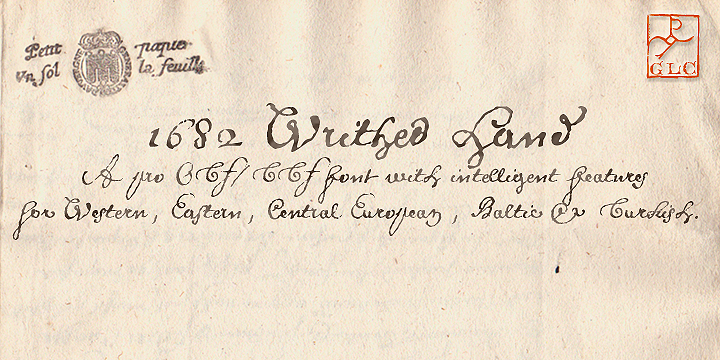 Petit papier
Un sol la feuille
GLC
1682 Writhed Hand
A pro OTF/TTF font with intelligent features
for Western, Eastern, Central European, Baltic & Turkish.